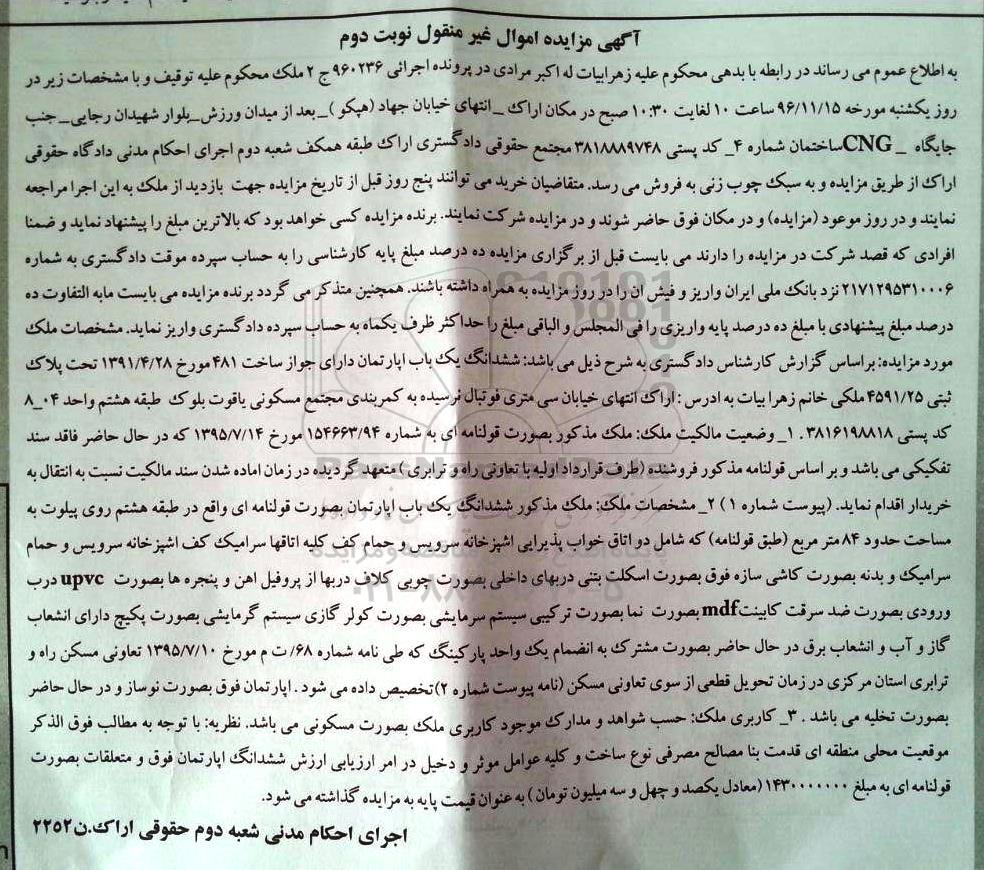 آگهی مزایده اموال غیر منقول نوبت دوم
به اطلاع عموم می رساند در رابطه با بدهی محکوم علیه زهرابیات له اکبر مرادی در پرونده اجرائی ۹۶۰۲۳۶ ج ۲ ملک محکوم علیه توقیف و با مشخصات زیر در
روز یکشنبه مورخه ۹۶/۱۱/۱۵ ساعت ۱۰ لغایت ۱۰:۳۰ صبح در مکان اراک _ انتهای خیابان جهاد (هپکو)_ بعد از میدان ورزش_بلوار شهیدان رجایی_ جنب
جایگاه _ CNGساختمان شماره ۴_ کد پستی ۳۸۱۸۸۸۹۷۴۸ مجتمع حقوقی دادگستری اراک طبقه همکف شعبه دوم اجرای احکام مدنی دادگاه حقوقی
اراک از طریق مزایده و به سبک چوب زنی به فروش می رسد. متقاضیان خرید می توانند پنج روز قبل از تاریخ مزایده جهت بازدید از ملک به این اجرا مراجعه
نمایند و در روز موعود (مزایده) و در مکان فوق حاضر شوند و در مزایده شرکت نمایند. برنده مزایده کسی خواهد بود که بالاترین مبلغ را پیشنهاد نماید و ضمنا
افرادی که قصد شرکت در مزایده را دارند می بایست قبل از برگزاری مزایده ده درصد مبلغ پایه کارشناسی را به حساب سپرده موقت دادگستری به شماره
۲۱۷۱۲۹۵۳۱۰۰۰۶ نزد بانک ملی ایران واریز و فیش ان را در روز مزایده به همراه داشته باشند. همچنین متذکر می گردد برنده مزایده می بایست مابه التفاوت ده
درصد مبلغ پیشنهادی با مبلغ ده درصد پایه واریزی را فی المجلس و الباقی مبلغ را حداکثر ظرف یکماه به حساب سپرده دادگستری واریز نماید. مشخصات ملک
مورد مزایده: بر اساس گزارش کارشناس دادگستری به شرح ذیل می باشد: ششدانگ یک باب اپارتمان دارای جواز ساخت ۴۸۱ مورخ ۱۳۹۱/۴/۲۸ تحت پلاک
ثبتی ۴۵۹۱/۲۵ ملکی خانم زهرا بیات به ادرس : اراک انتهای خیابان سی متری فوتبال نرسیده به کمربندی مجتمع مسکونی یاقوت بلوک طبقه هشتم واحد ۰۴_۸
کد پستی ۳۸۱۶۱۹۸۸۱۸ . ۱_ وضعیت مالکیت ملک: ملک مذکور بصورت قولنامه ای به شماره ۱۵۴۶۶۳/۹۴ مورخ ۱۳۹۵/۷/۱۴ که در حال حاضر فاقد سند
تفکیکی می باشد و بر اساس قولنامه مذکور فروشنده (طرف قرارداد اولیه با تعاونی راه و ترابری ) متعهد گردیده در زمان اماده شدن سند مالکیت نسبت به انتقال به
خریدار اقدام نماید. (پیوست شماره ۱) ۲_ مشخصات ملک: ملک مذکور ششدانگ یک باب اپارتمان بصورت قولنامه ای واقع در طبقه هشتم روی پیلوت به
مساحت حدود ۸۴ متر مربع (طبق قولنامه) که شامل دو اتاق خواب پذیرایی اشپزخانه سرویس و حمام کف کلیه اتاقها سرامیک کف اشپزخانه سرویس و حمام
سرامیک و بدنه بصورت کاشی سازه فوق بصورت اسکلت بتنی دربهای داخلی بصورت چوبی کلاف دربها از پروفیل اهن و پنجره ها بصورت upvc درب
ورودی بصورت ضد سرقت کابینت mdf بصورت نما بصورت ترکیبی سیستم سرمایشی بصورت کولر گازی سیستم گرمایشی بصورت پکیج دارای انشعاب
گاز و آب و انشعاب برق در حال حاضر بصورت مشترک به انضمام یک واحد پارکینگ که طی نامه شماره ۶۸/ ت م مورخ ۱۳۹۵/۷/۱۰ تعاونی مسکن راه و
ترابری استان مرکزی در زمان تحویل قطعی از سوی تعاونی مسکن (نامه پیوست شماره ۲) تخصیص داده می شود . اپارتمان فوق بصورت نوساز و در حال حاضر
بصورت تخلیه می باشد . ۳_ کاربری ملک: حسب شواهد و مدارک موجود کاربری ملک بصورت مسکونی می باشد. نظریه: با توجه به مطالب فوق الذکر
موقعیت محلی منطقه ای قدمت بنا مصالح مصرفی نوع ساخت و کلیه عوامل موثر و دخیل در امر ارزیابی ارزش ششدانگ اپارتمان فوق و متعلقات بصورت
قولنامه ای به مبلغ ۱۴۳۰۰۰۰۰۰۰ (معادل یکصد و چهل و سه میلیون تومان ) به عنوان قیمت پایه به مزایده گذاشته می شود.
اجرای احکام مدنی شعبه دوم حقوقی اراک.ن۲۲۵۲